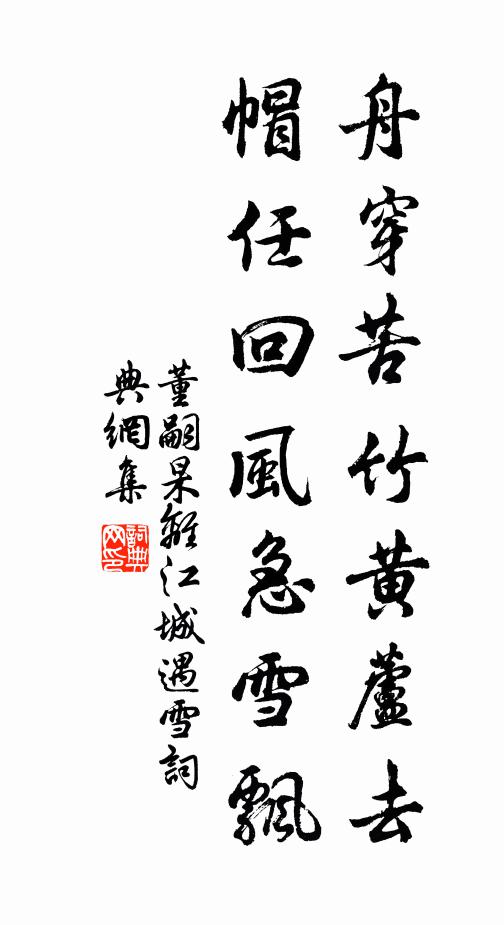 舟穿苦竹黃蘆去
帽任回風急雪飄
董嗣杲離江城遇雪詞
典網集
詞典
网印